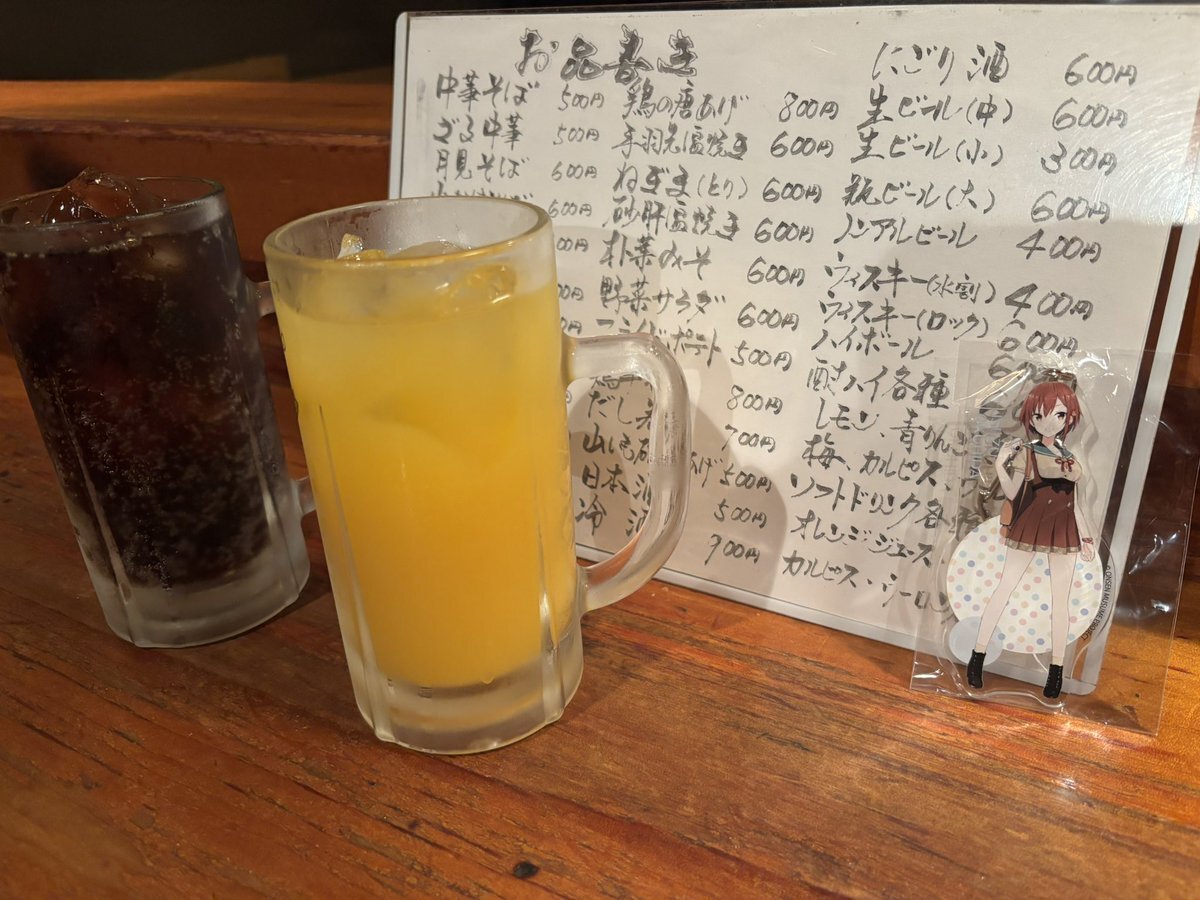 お品書き
中華そば 500円
ざる中華 500円
月見そば 600円
600円
00円
00円
鶏の唐あげ 800円
手羽先塩焼き 600円
ねぎま(とり) 600円
砂肝塩焼き 600円
朴葉みそ 600円
野菜サラダ 600円
ポテト 500円
800円
だし 700円
山いも あげ 500円
日本酒 500円
冷酒 900円
にごり酒 600円
生ビール(中) 600円
生ビール(小) 300円
瓶ビール(大) 600円
ノンアルビール 400円
ウィスキー(水割) 400円
ウィスキー(ロック) 600円
ハイボール
酎ハイ各種
レモン、青りんご
梅、カルピス、
ソフトドリンク各
オレンジジュース
カルピス、
©ONSEN MUSUME PROJECT